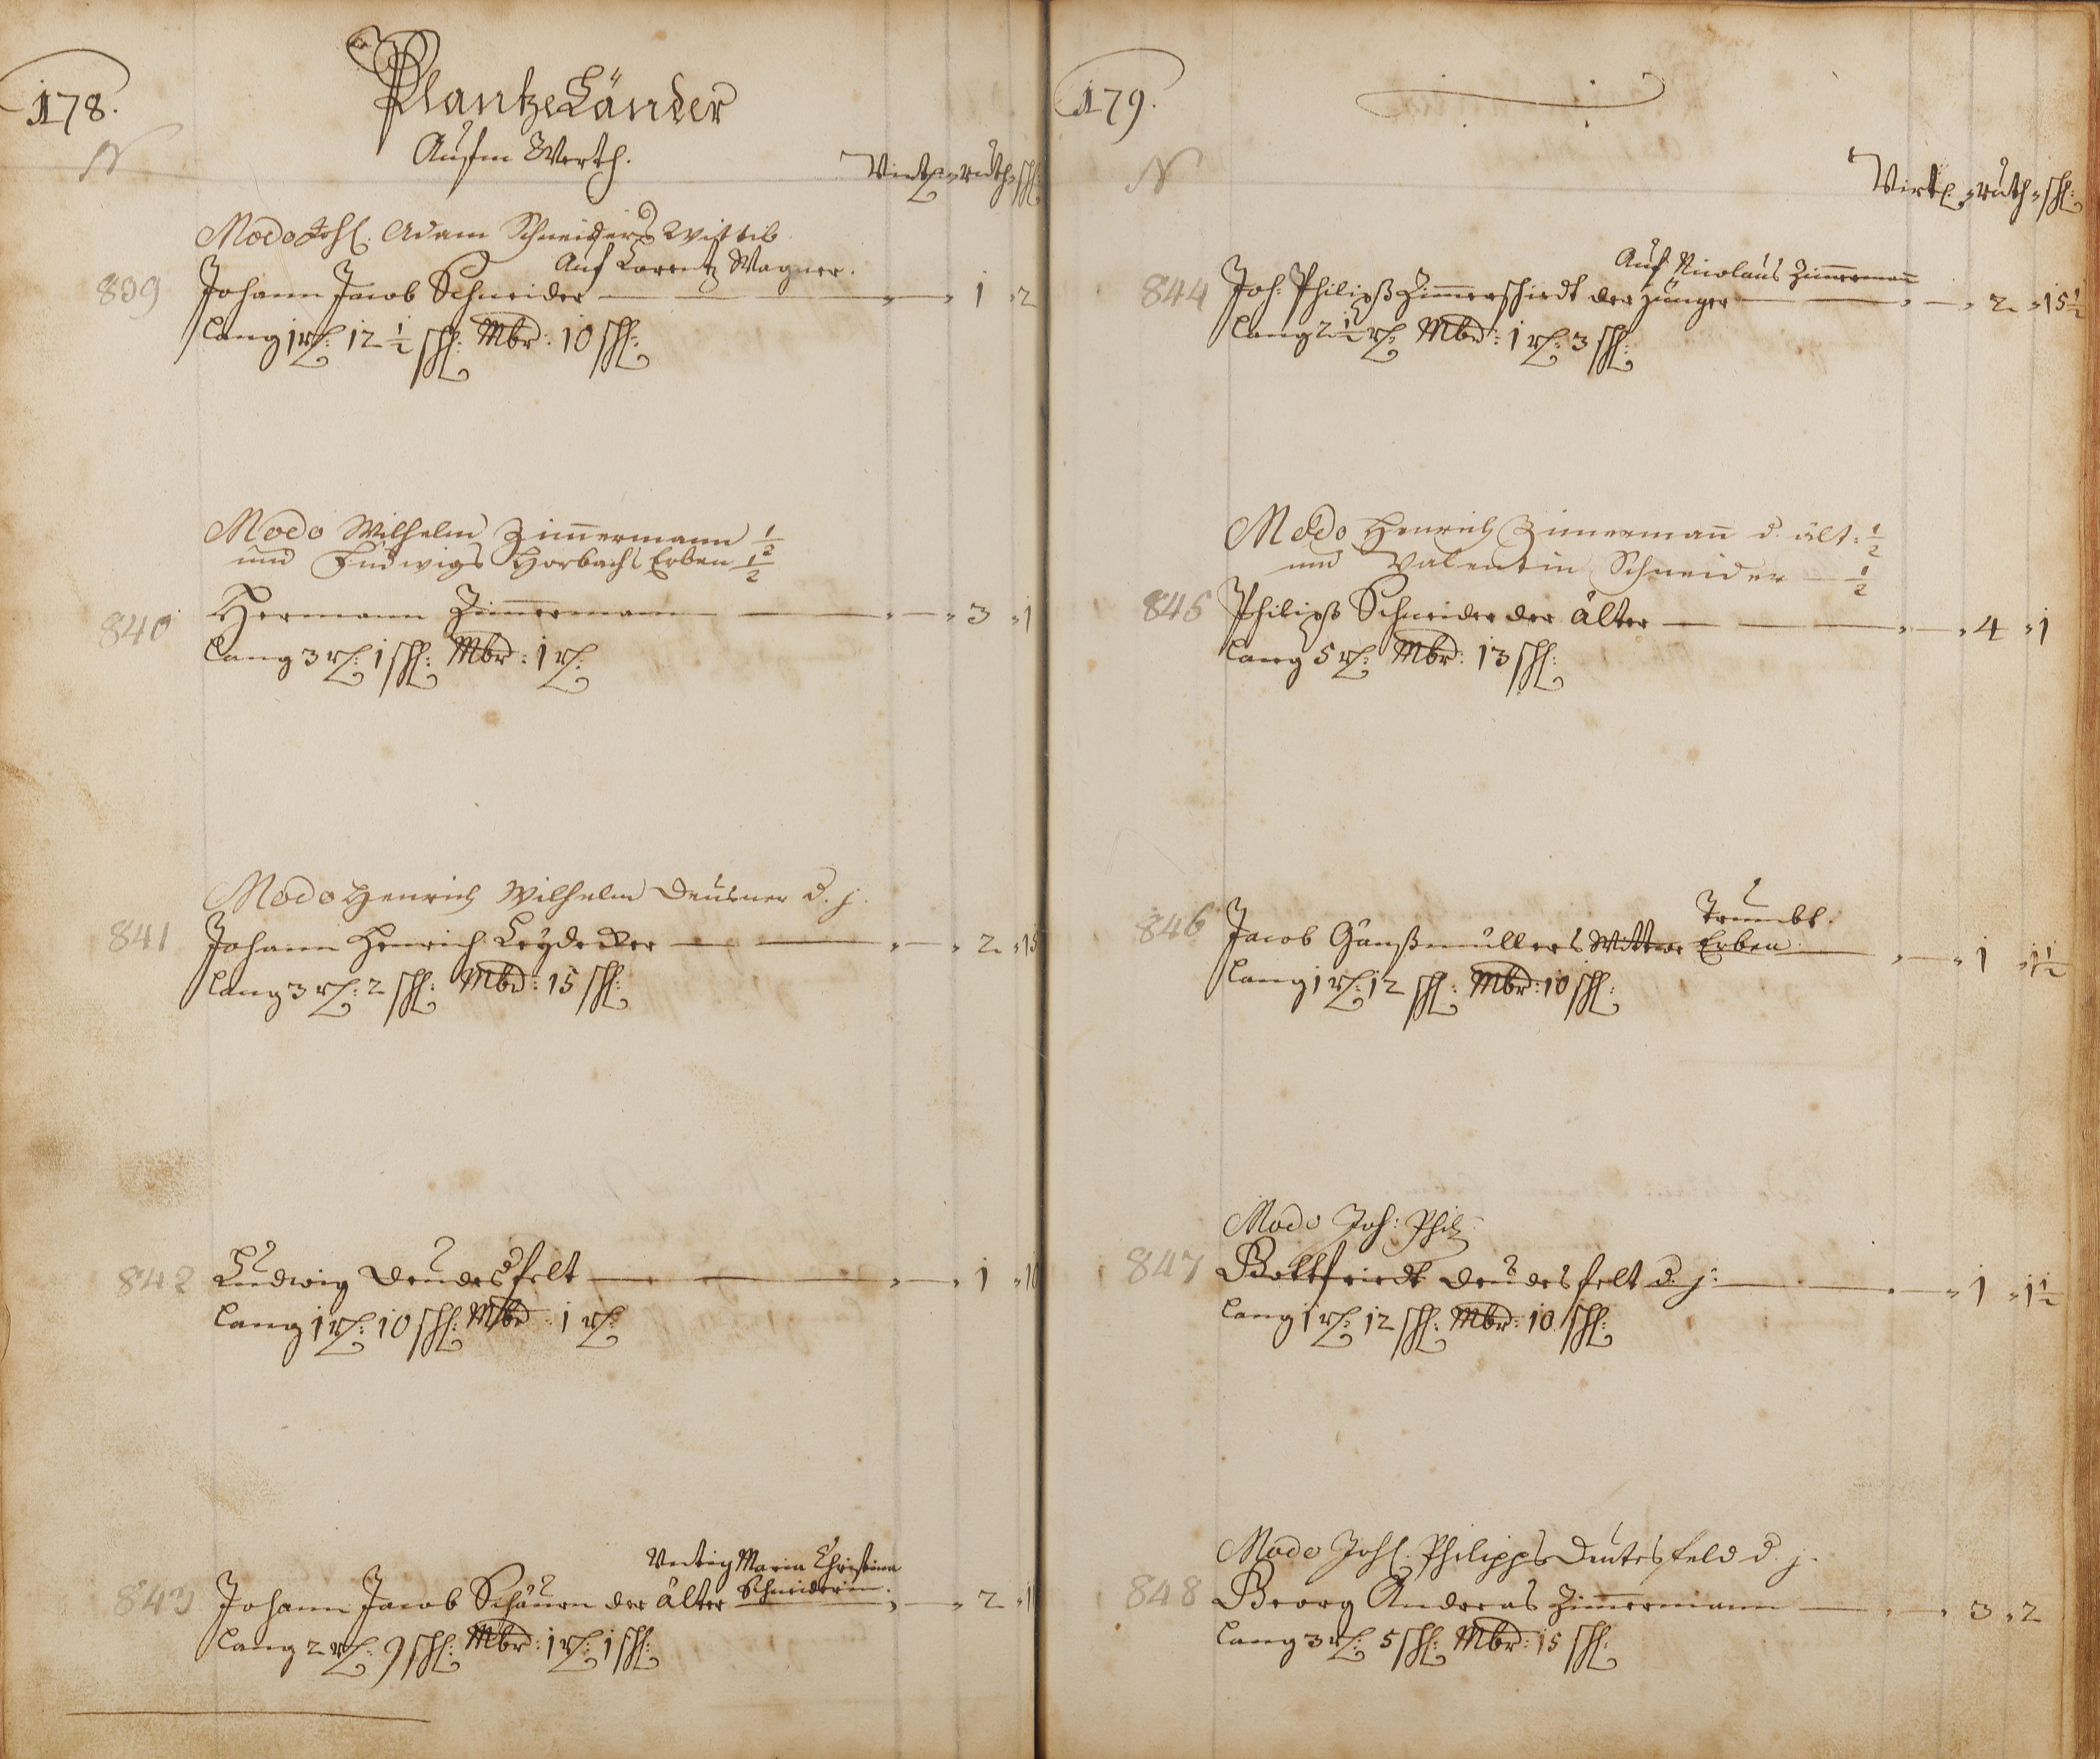 178.
PlantzeLänder
Aufm Werth.
N
Virtl: ruth schl:
Modo Joh. Adam Schneiders Wittib
Auf Lorentz Wagner.
839 Johann Jacob Schneider — 1 2
lang 1 rt: 12 1/2 sch: Mbr: 10 sch:
Modo Wilhelm Zimermann 1/2
und Ludwigs Horbachs Erben 1/2
840 Hermann Zimmermann — 3 1
lang 3 rt: 1 sch: Mbr: 1 rt:
Modo Henrich Wilhelm Deusner d. j.
841 Johann Henrich Leydecker — 2 15
lang 3 rt: 2 sch: Mbr: 15 sch:
842 Ludwig Deudesfelt — 1 10
lang 1 rt: 10 sch: Mbr: 1 rt:
Maria Christina
Schneiderin.
843 Johann Jacob Schäuen der älter — 2
lang 2 rt: 9 sch: Mbr: 1 rt: 1 sch:
179.
N
Virtl: ruth schl:
Auf Nicolaus Zimermañ
844 Joh: Philipß Zimerschiedt der jünger — 2 15 1/2
lang 2 1/2 rt: Mbr: 1 rt: 3 sch:
Modo Henrich Zimermañ d. ält: 1/2
und Valentin Schneider 1/2
845 Philipß Schneider der älter — 4 1
lang 5 rt: Mbr: 13 sch:
846 Jacob Gänßmüllers Wittwe Erben — 1 1 1/2
lang 1 rt: 12 sch: Mbr: 10 sch:
Modo Joh: Phil:
847 Gottfriedt Deudesfelt d. j: — 1 1 1/2
lang 1 rt: 12 sch: Mbr: 10 sch:
Modo Joh. Philipps Deutesfeld d. j.
848 Georg Andreas Zimmermann — 3 2
lang 3 rt: 5 sch: Mbr: 15 sch: